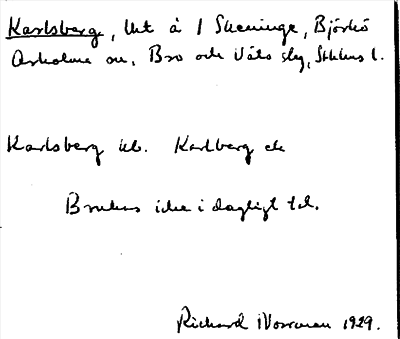 Karlsberg, lht å 1 Skeninge, Björkö
Arholma sn, Bro och Väto slg, Sthlms l.
Karlsberg ub. Karlberg ek
Brukas icke i dagligt tal.
Richard Norrman 1929.